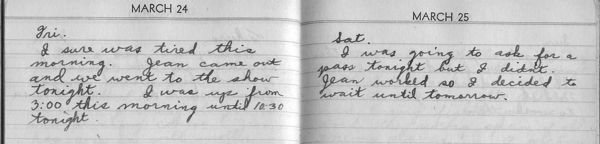 MARCH 24
Fri.
I sure was tired this
morning. Jean came out
and we went to the show
tonight. I was up from
3:00 this morning until 10:30
tonight.
MARCH 25
Sat.
I was going to ask for a
pass tonight but I didnt.
Jean worked so I decided to
wait until tomorrow.